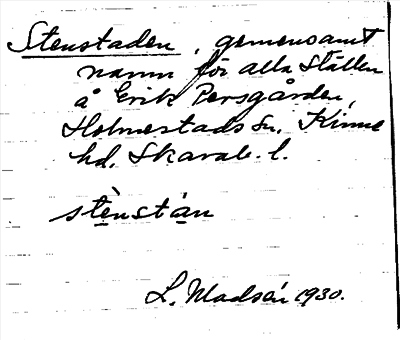 Stenstaden, gemensamt
namn för alla ställen
å Erik Persgården,
Holmestads Sn. Kinne
hd. Skarab. l.
stènstàn
L. Madsén 1930.